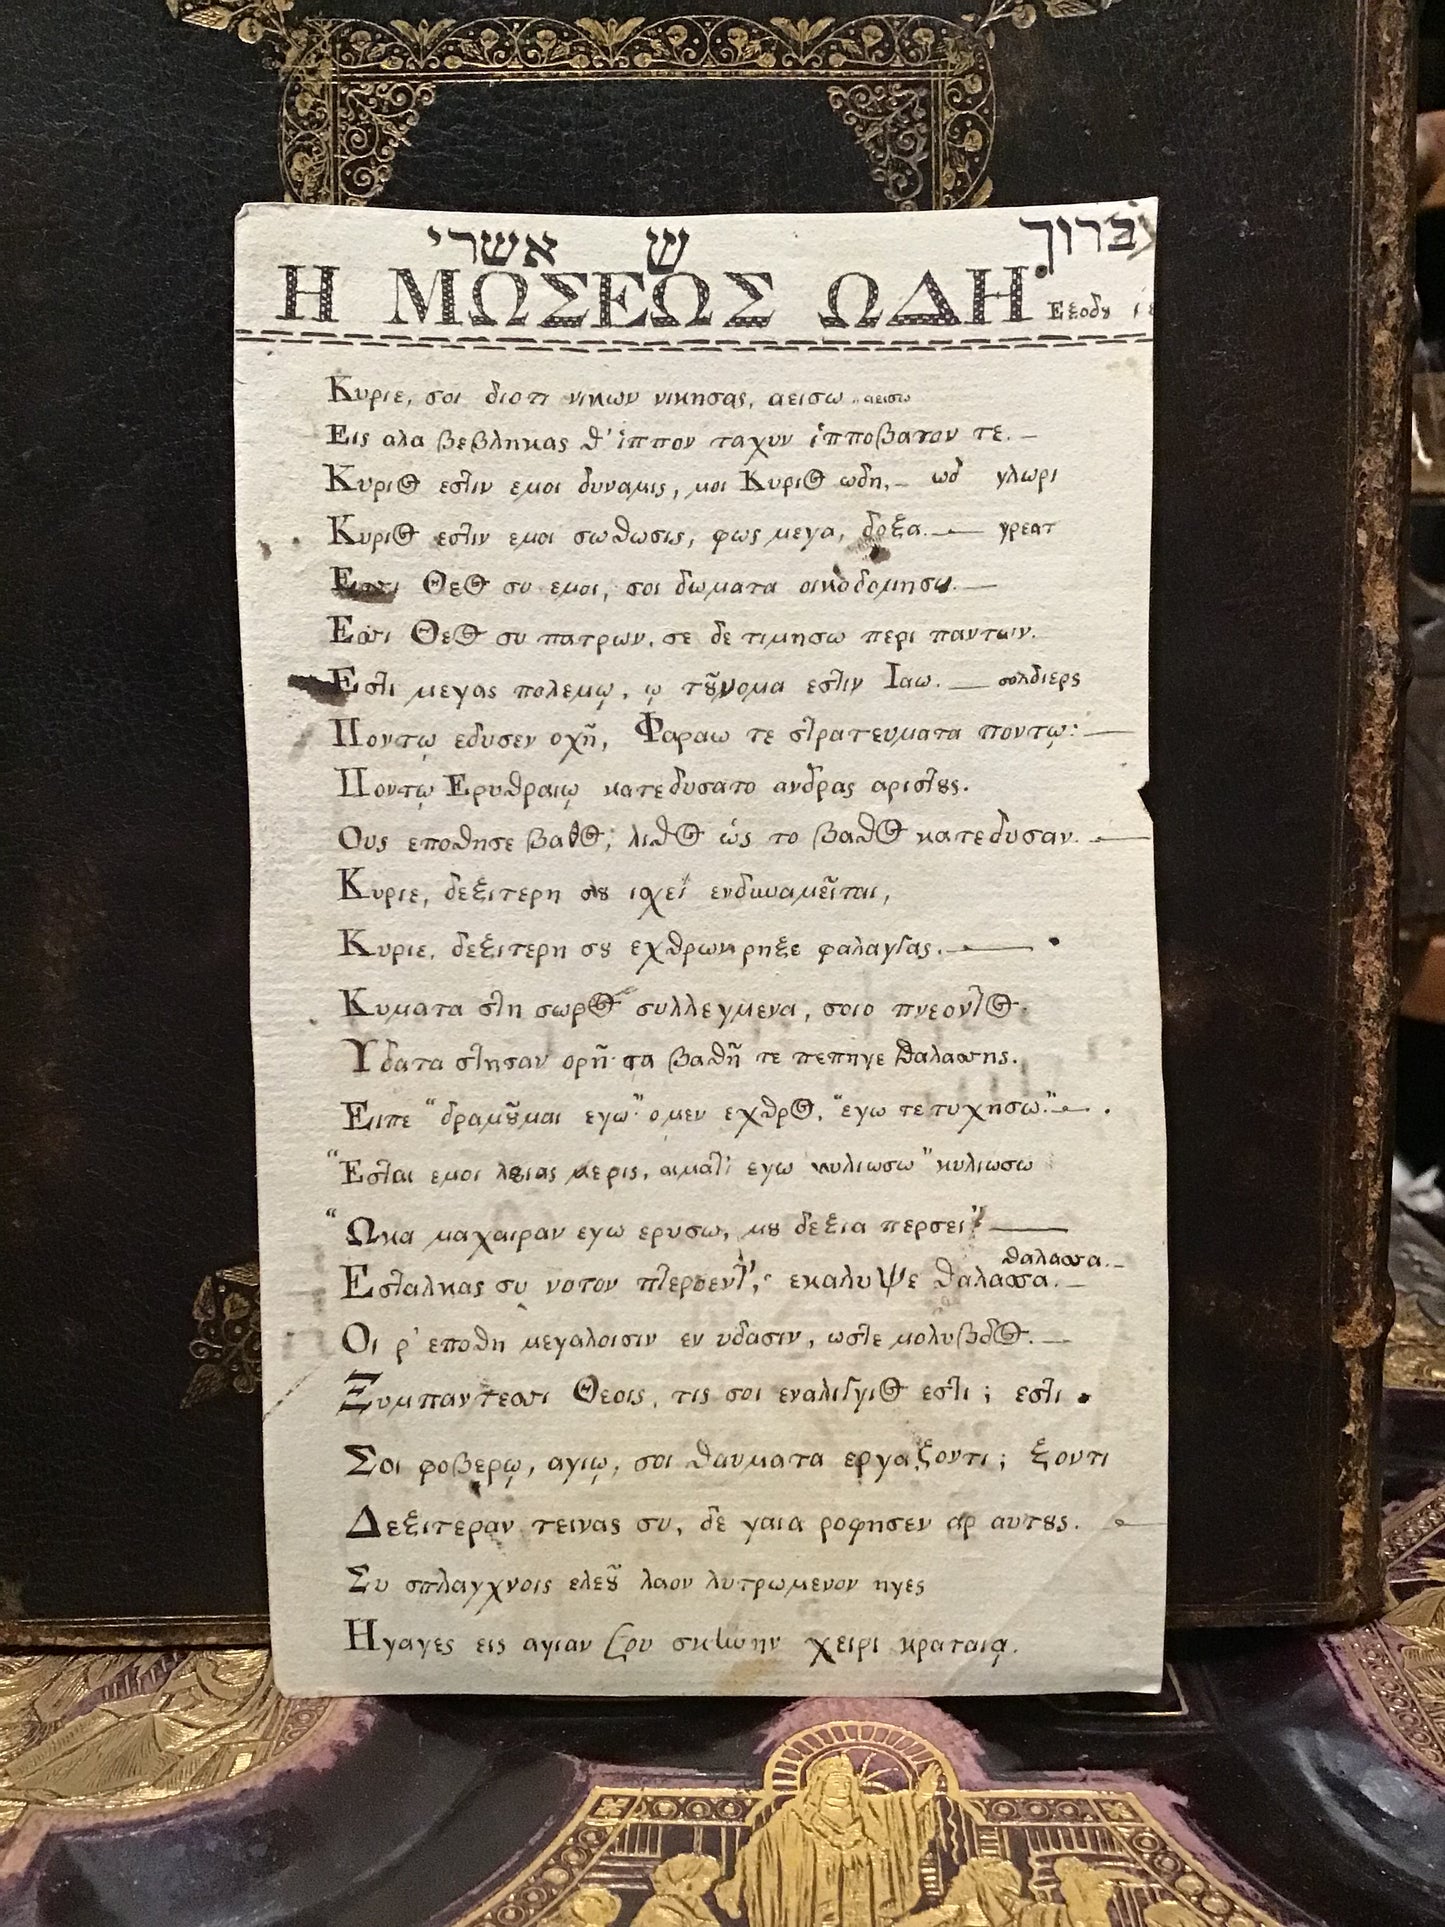 ברוך ש אשרי
Η ΜΩΣΕΩΣ ΩΔΗ Εξοδȣ ιε
Κυριε, σοι διοτι νικων νικησας, αεισω αεισω
Εις αλα βεβληκας θ' ἱππον ταχυν ἱπποβατον τε.
Κυριος εστιν εμοι δυναμις, μοι Κυριος ωδη, ωδ γλωρι
Κυριος εστιν εμοι σωθωσις, φως μεγα, δοξα. γρεατ
Εσσι Θεος συ εμοι, σοι δωματα οικοδομησω.
Εσσι Θεος συ πατρων, σε δε τιμησω περι παντων.
Εστι μεγας πολεμῳ, ῳ τȣ͂νομα εστιν Ιαω. σολδιερς
Ποντῳ εδυσεν οχῆ, Φαραω τε στρατευματα ποντῳ:
Ποντῳ Ερυθραιῳ κατεδυσατο ανδρας αριστȣς.
Ους εποθησε βαθος; λιθος ὡς το βαθος κατεδυσαν.
Κυριε, δεξιτερη σȣ ισχεϊ ενδυναμεῖται,
Κυριε, δεξιτερη σȣ εχθρων ρηξε φαλαγγας.
Κυματα στη σωρος συλλεγμενα, σοιο πνεοντος.
Υδατα στησαν ορῆ τα βαθῆ τε πεπηγε θαλασσης.
Ειπε "δραμȣ͂μαι εγω" ο μεν εχθρος, "εγω τε τυχησω."
"Εσται εμοι λειας μερις, αιματι εγω κυλιωσω" κυλιωσω
"Ωκα μαχαιραν εγω ερυσω, μȣ δεξια περσει"
θαλασσα.
Εσταλκας συ νοτον πτεροεντ', εκαλυψε θαλασσα.
Οι ρ' εποθη μεγαλοισιν εν υδασιν, ωστε μολυβδος.
Ξυμπαντεσσι Θεοις, τις σοι εναλιγγιος εστι; εστι
Σοι φοβερῳ, αγιῳ, σοι θαυματα εργαξοντι; ξοντι
Δεξιτεραν τεινας συ, δε γαια ροφησεν αρ αυτȣς.
Συ σπλαγχνοις ελεȣ͂ λαον λυτρωμενον ηγες
Ηγαγες εις αγιαν σου σκηνην χειρι κραταιᾳ.